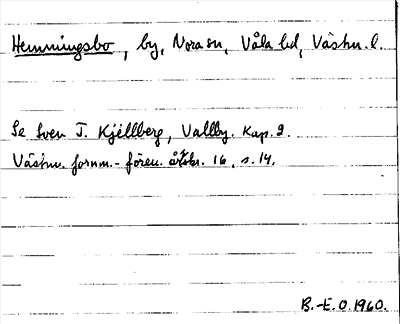 Hemmingsbo, by, Nora sn, Våla hd, Västm. l.
Se Sven T. Kjellberg, Vallby. Kap. 9.
Västm. fornm.-fören. årsskr. 16, s. 14.
B.-E. O. 1960.